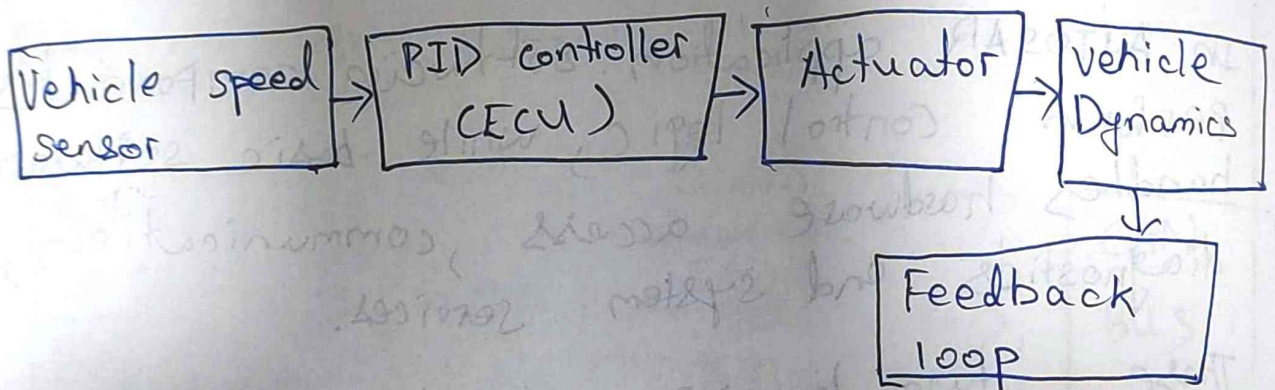 Vehicle speed
sensor
PID controller
(ECU)
Actuator
Vehicle
Dynamics
Feedback
loop